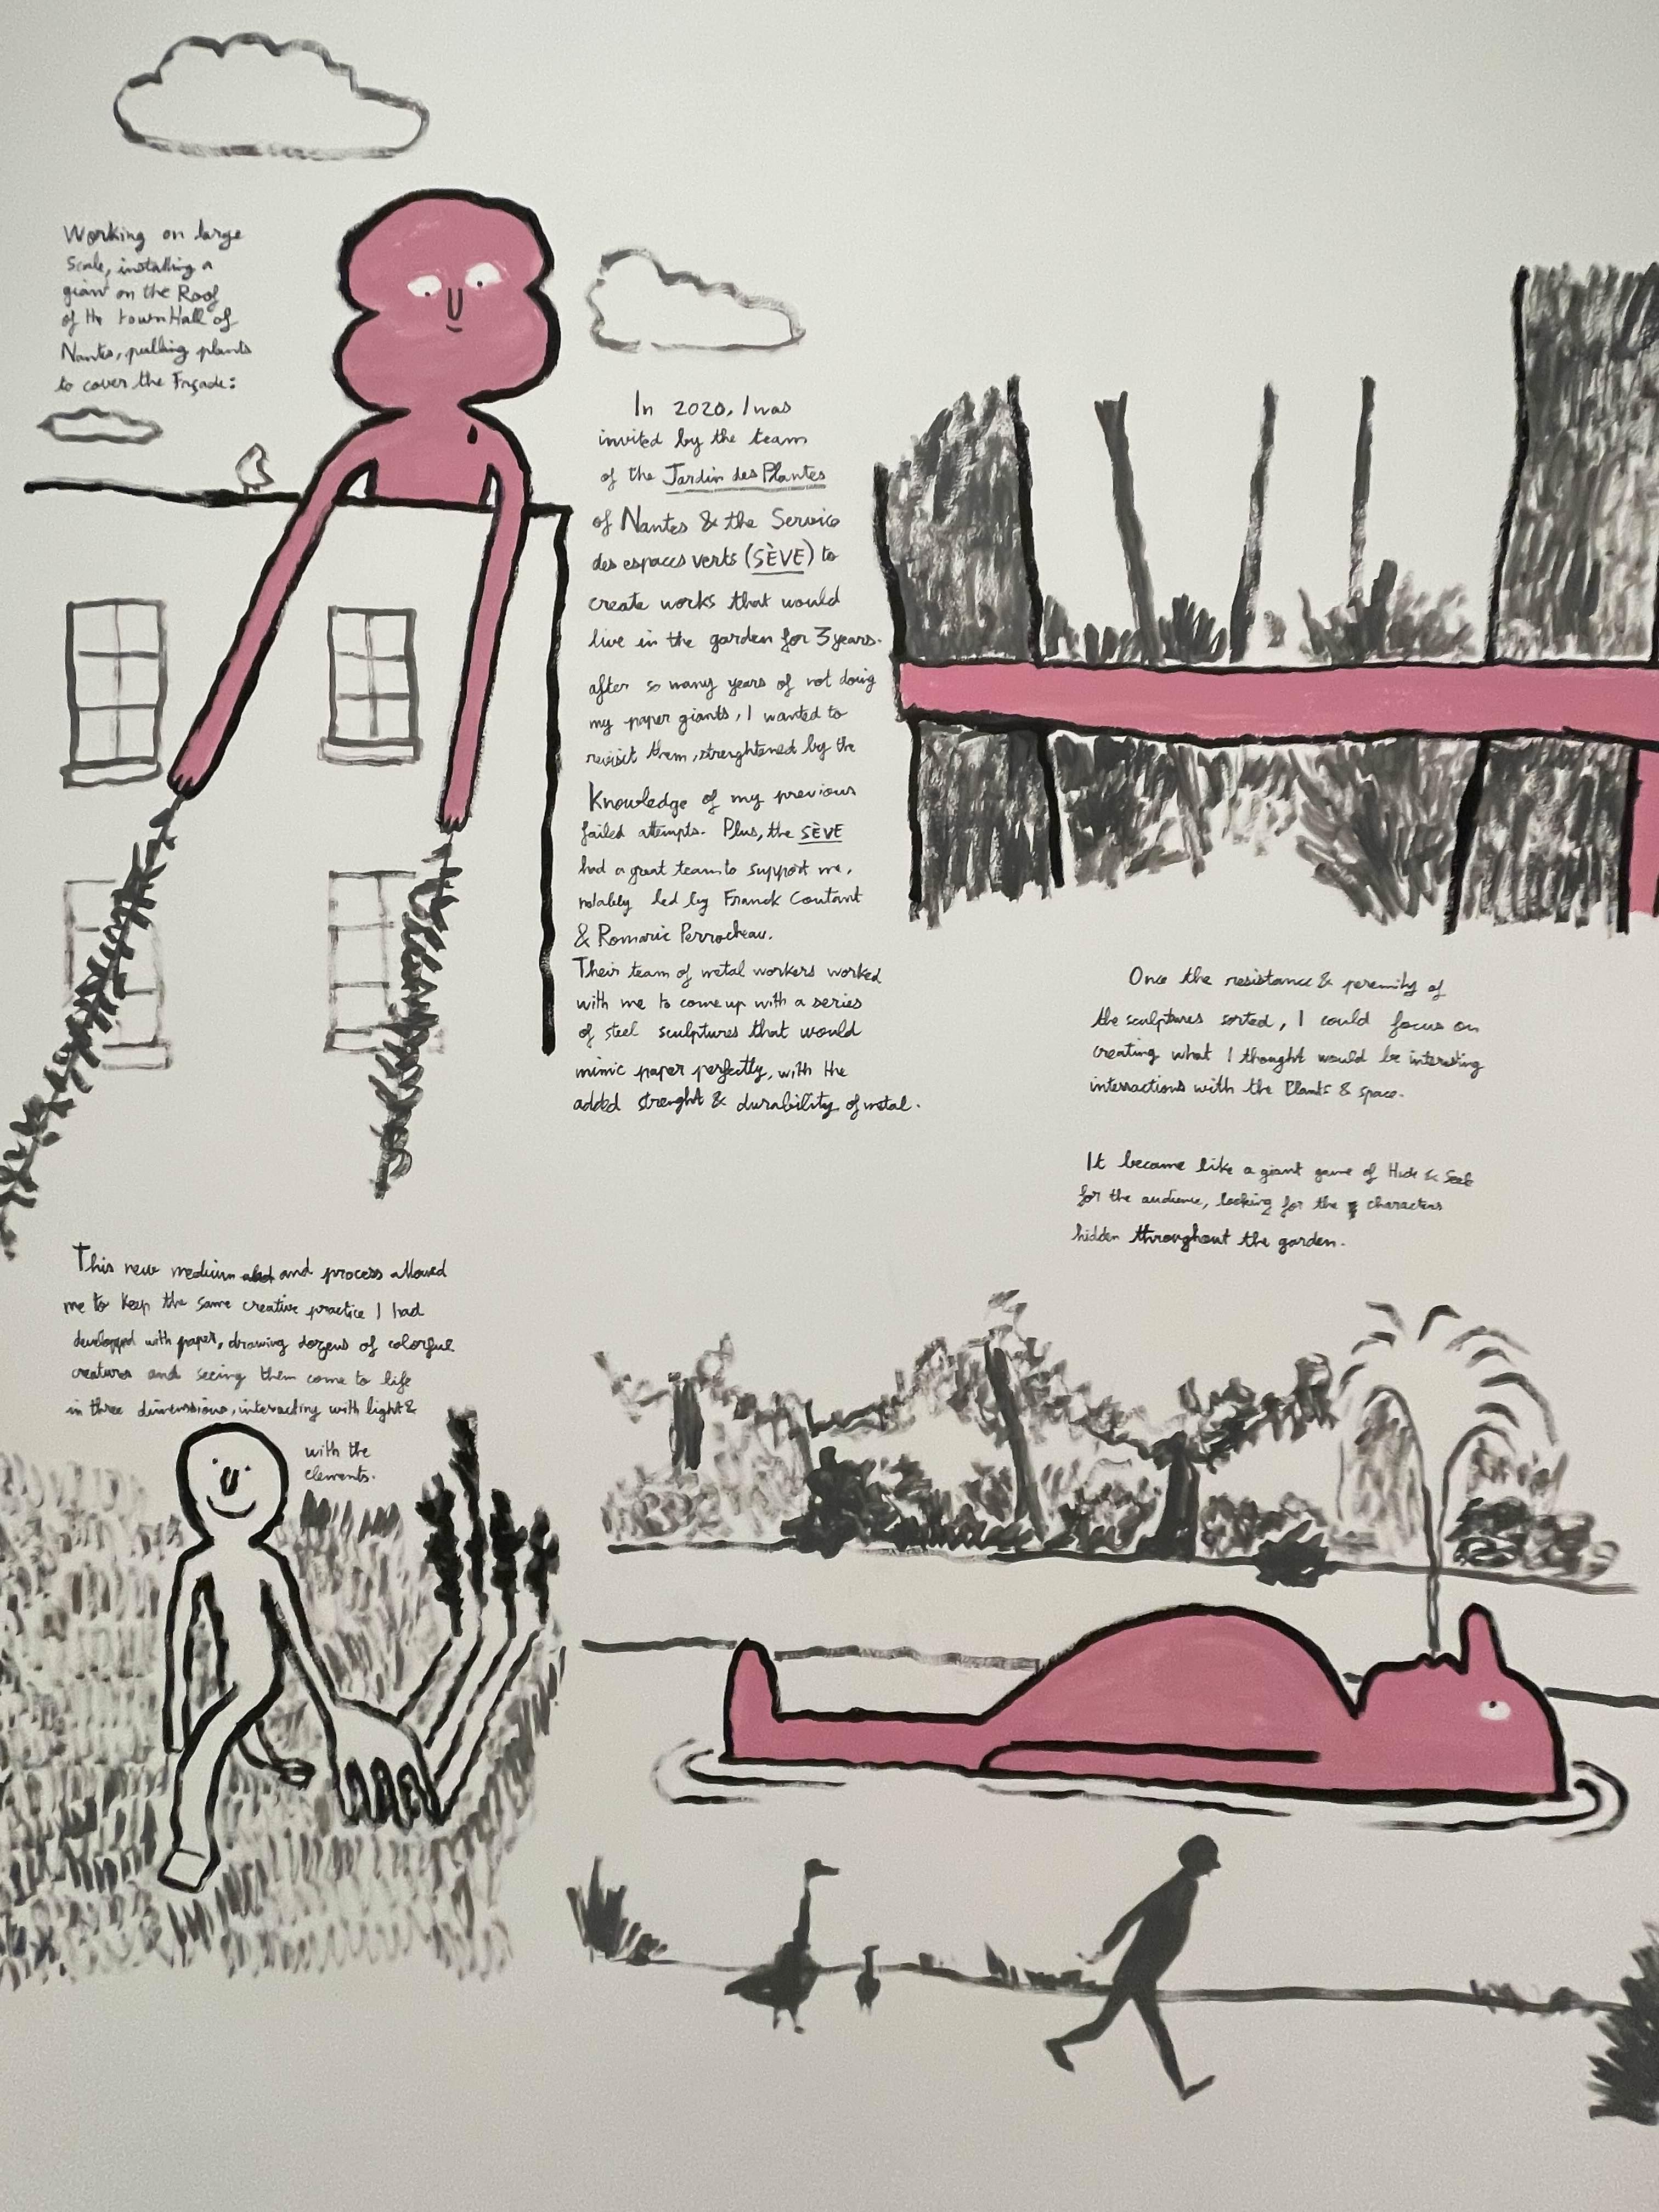 Working on large
Scale, installing a
giant on the Roof
of the town Hall of
Nantes, pulling plants
to cover the Façade:
In 2020, I was
invited by the team
of the Jardin des Plantes
of Nantes & the Service
des espaces verts (SÈVE) to
create works that would
live in the garden for 3 years.
after so many years of not doing
my paper giants, I wanted to
revisit them, strenghtened by the
Knowledge of my previous
failed attempts. Plus, the SÈVE
had a great team to support me,
notably led by Franck Coutant
& Romaric Perrocheau.
Their team of metal workers worked
with me to come up with a series
of steel sculptures that would
mimic paper perfectly, with the
added strenght & durability of metal.
Once the resistance & peremity of
the sculptures sorted, I could focus on
creating what I thought would be interesting
interractions with the Plants & space.
It became like a giant game of Hide & Seek
for the audience, looking for the characters
hidden throughout the garden.
This new medium and process allowed
me to keep the same creative practice I had
developped with paper, drawing dozens of colorful
creatures and seeing them come to life
in three dimensions, interacting with light &
with the
elements.